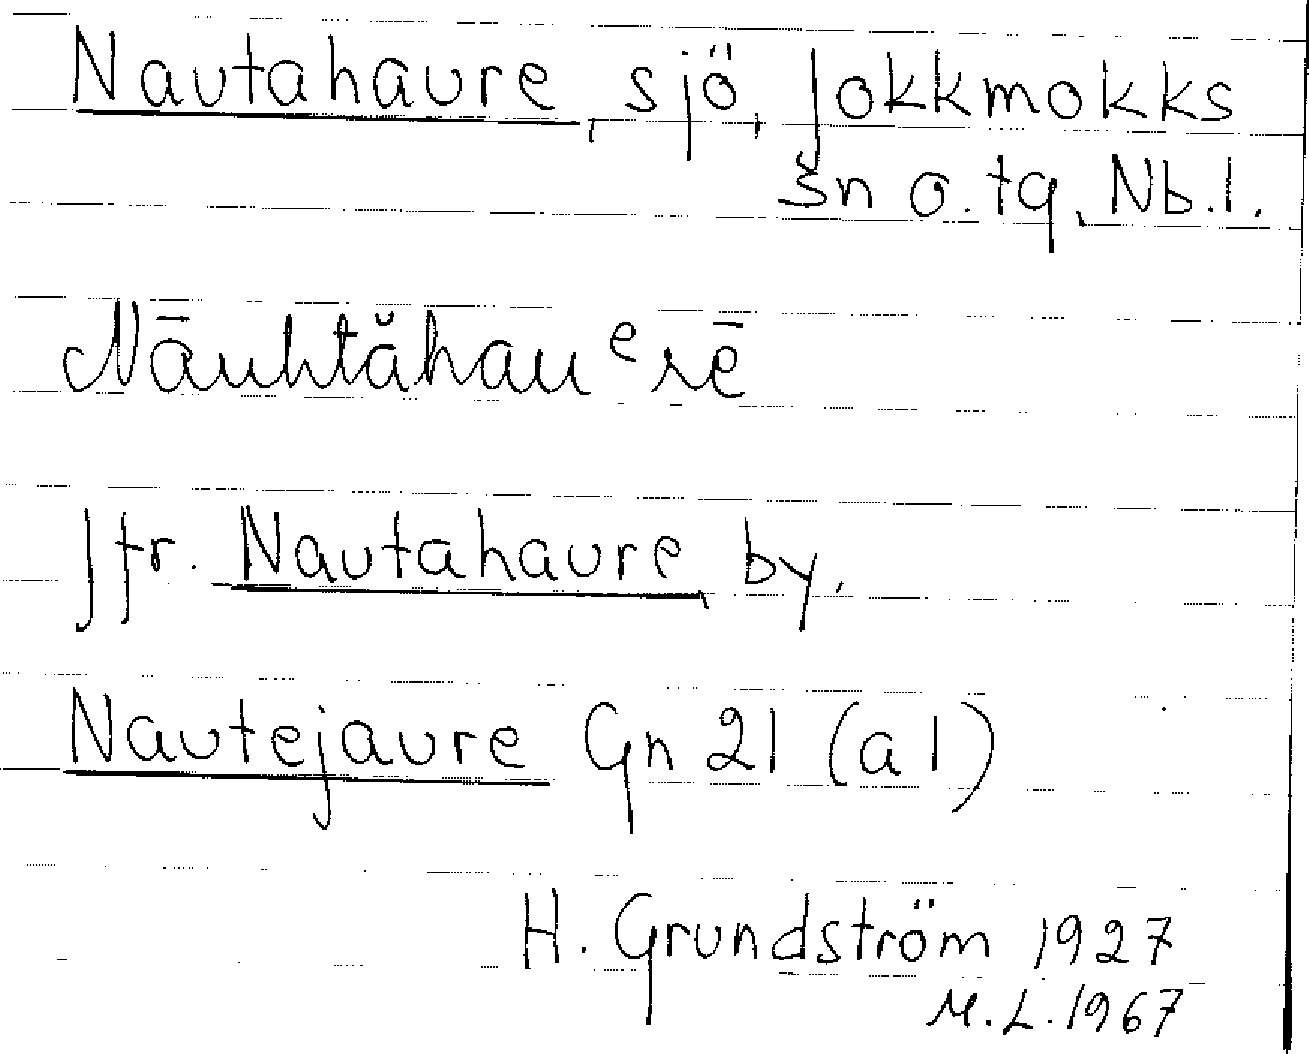 Nautahaure, sjö, Jokkmokks
sn o. tg, Nb.l.
Nāuhtăhauᵉrē
Jfr. Nautahaure, by.
Nautejaure Gn 21 (a 1)
H. Grundström 1927
M.L. 1967